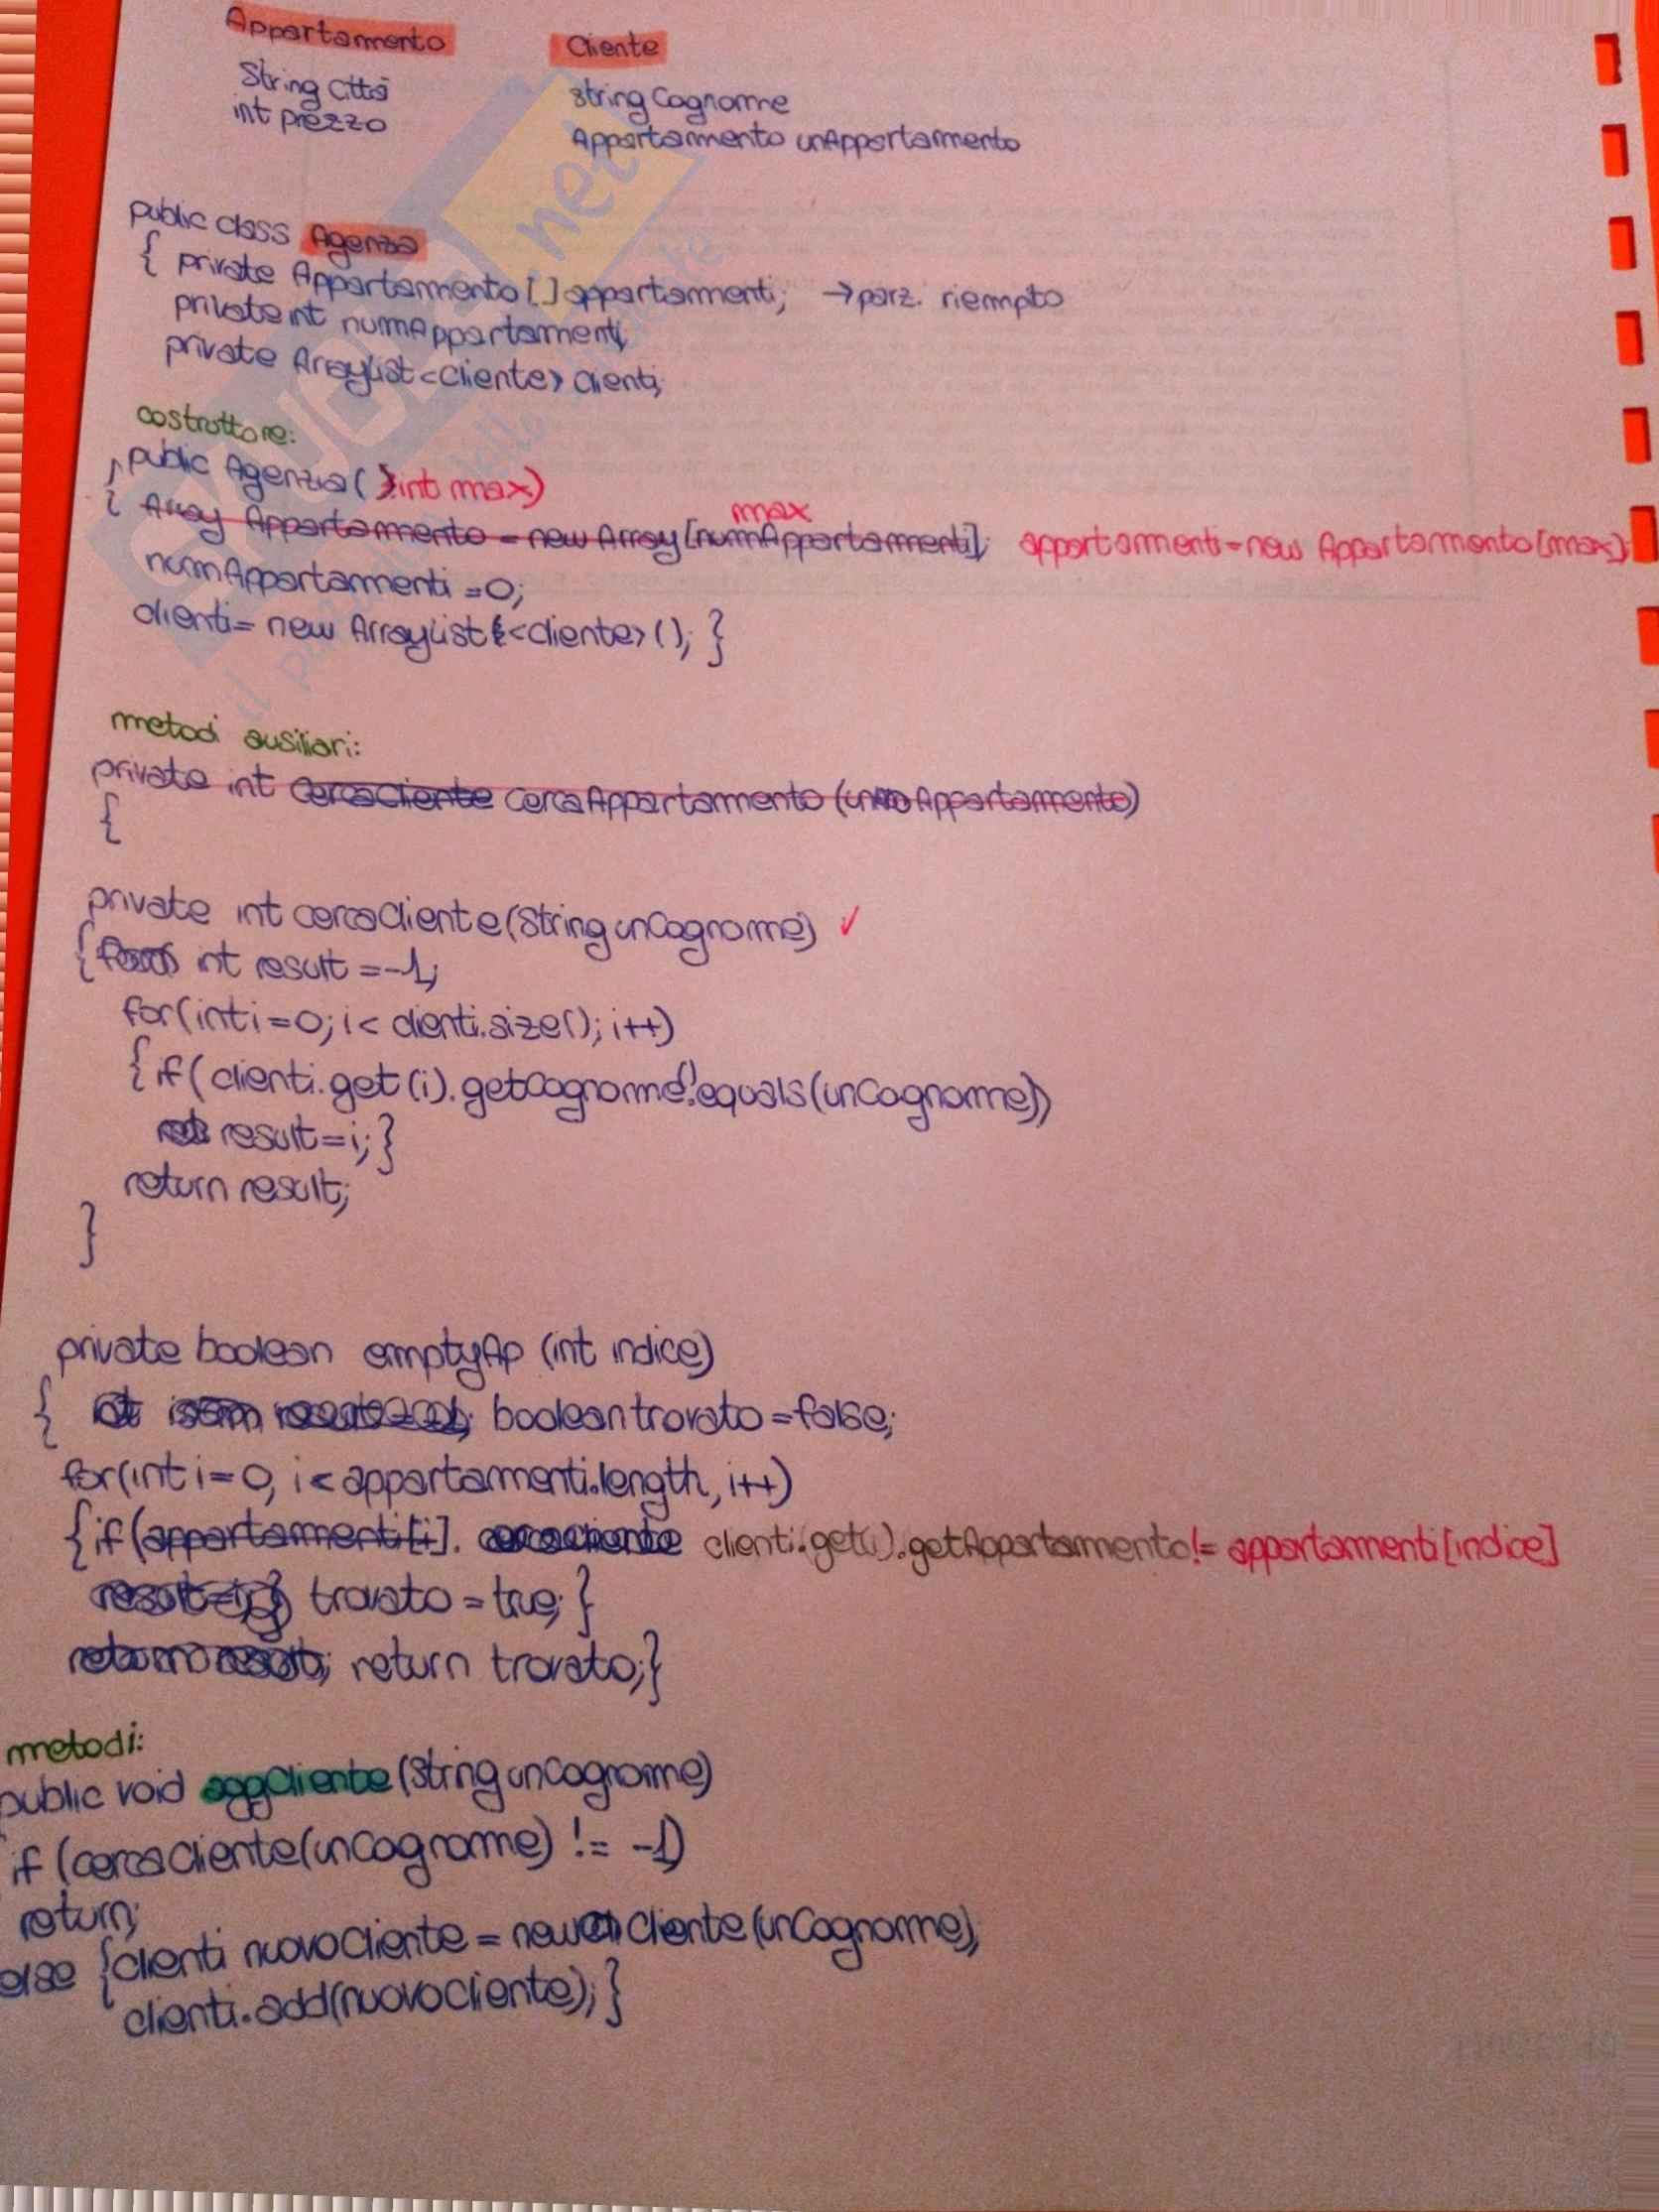 Appartamento Cliente
String Città string Cognome
int prezzo Appartamento unAppartamento
public class Agenzia
{ private Appartamento [ ] appartamenti; → parz. riempito
private int numAppartamenti;
private ArrayList <Cliente> clienti;
costruttore:
public Agenzia ( int max)
{ Array Appartamento = new Array [numAppartamenti]; max appartamenti = new Appartamento [max];
numAppartamenti = 0;
clienti = new ArrayList <cliente> (); }
metodi ausiliari:
private int cercaCliente cercaAppartamento (unAppartamento)
{
private int cercaCliente (String unCognome) ✓
{ int result = -1;
for (int i = 0; i < clienti.size(); i++)
{ if ( clienti.get (i). getCognome().equals (unCognome))
result = i; }
return result;
}
private boolean emptyAp (int indice)
{ boolean trovato = false;
for (int i = 0, i < appartamenti.length, i++)
{ if (appartamenti [i]. cercacliente clienti.get(i).getAppartamento != appartamenti [indice]
result = i; } trovato = true; }
return result; return trovato; }
metodi:
public void aggCliente (String unCognome)
if (cercacliente (unCognome) != -1)
return;
else { clienti nuovoCliente = new Cliente (unCognome);
clienti.add(nuovocliente); }